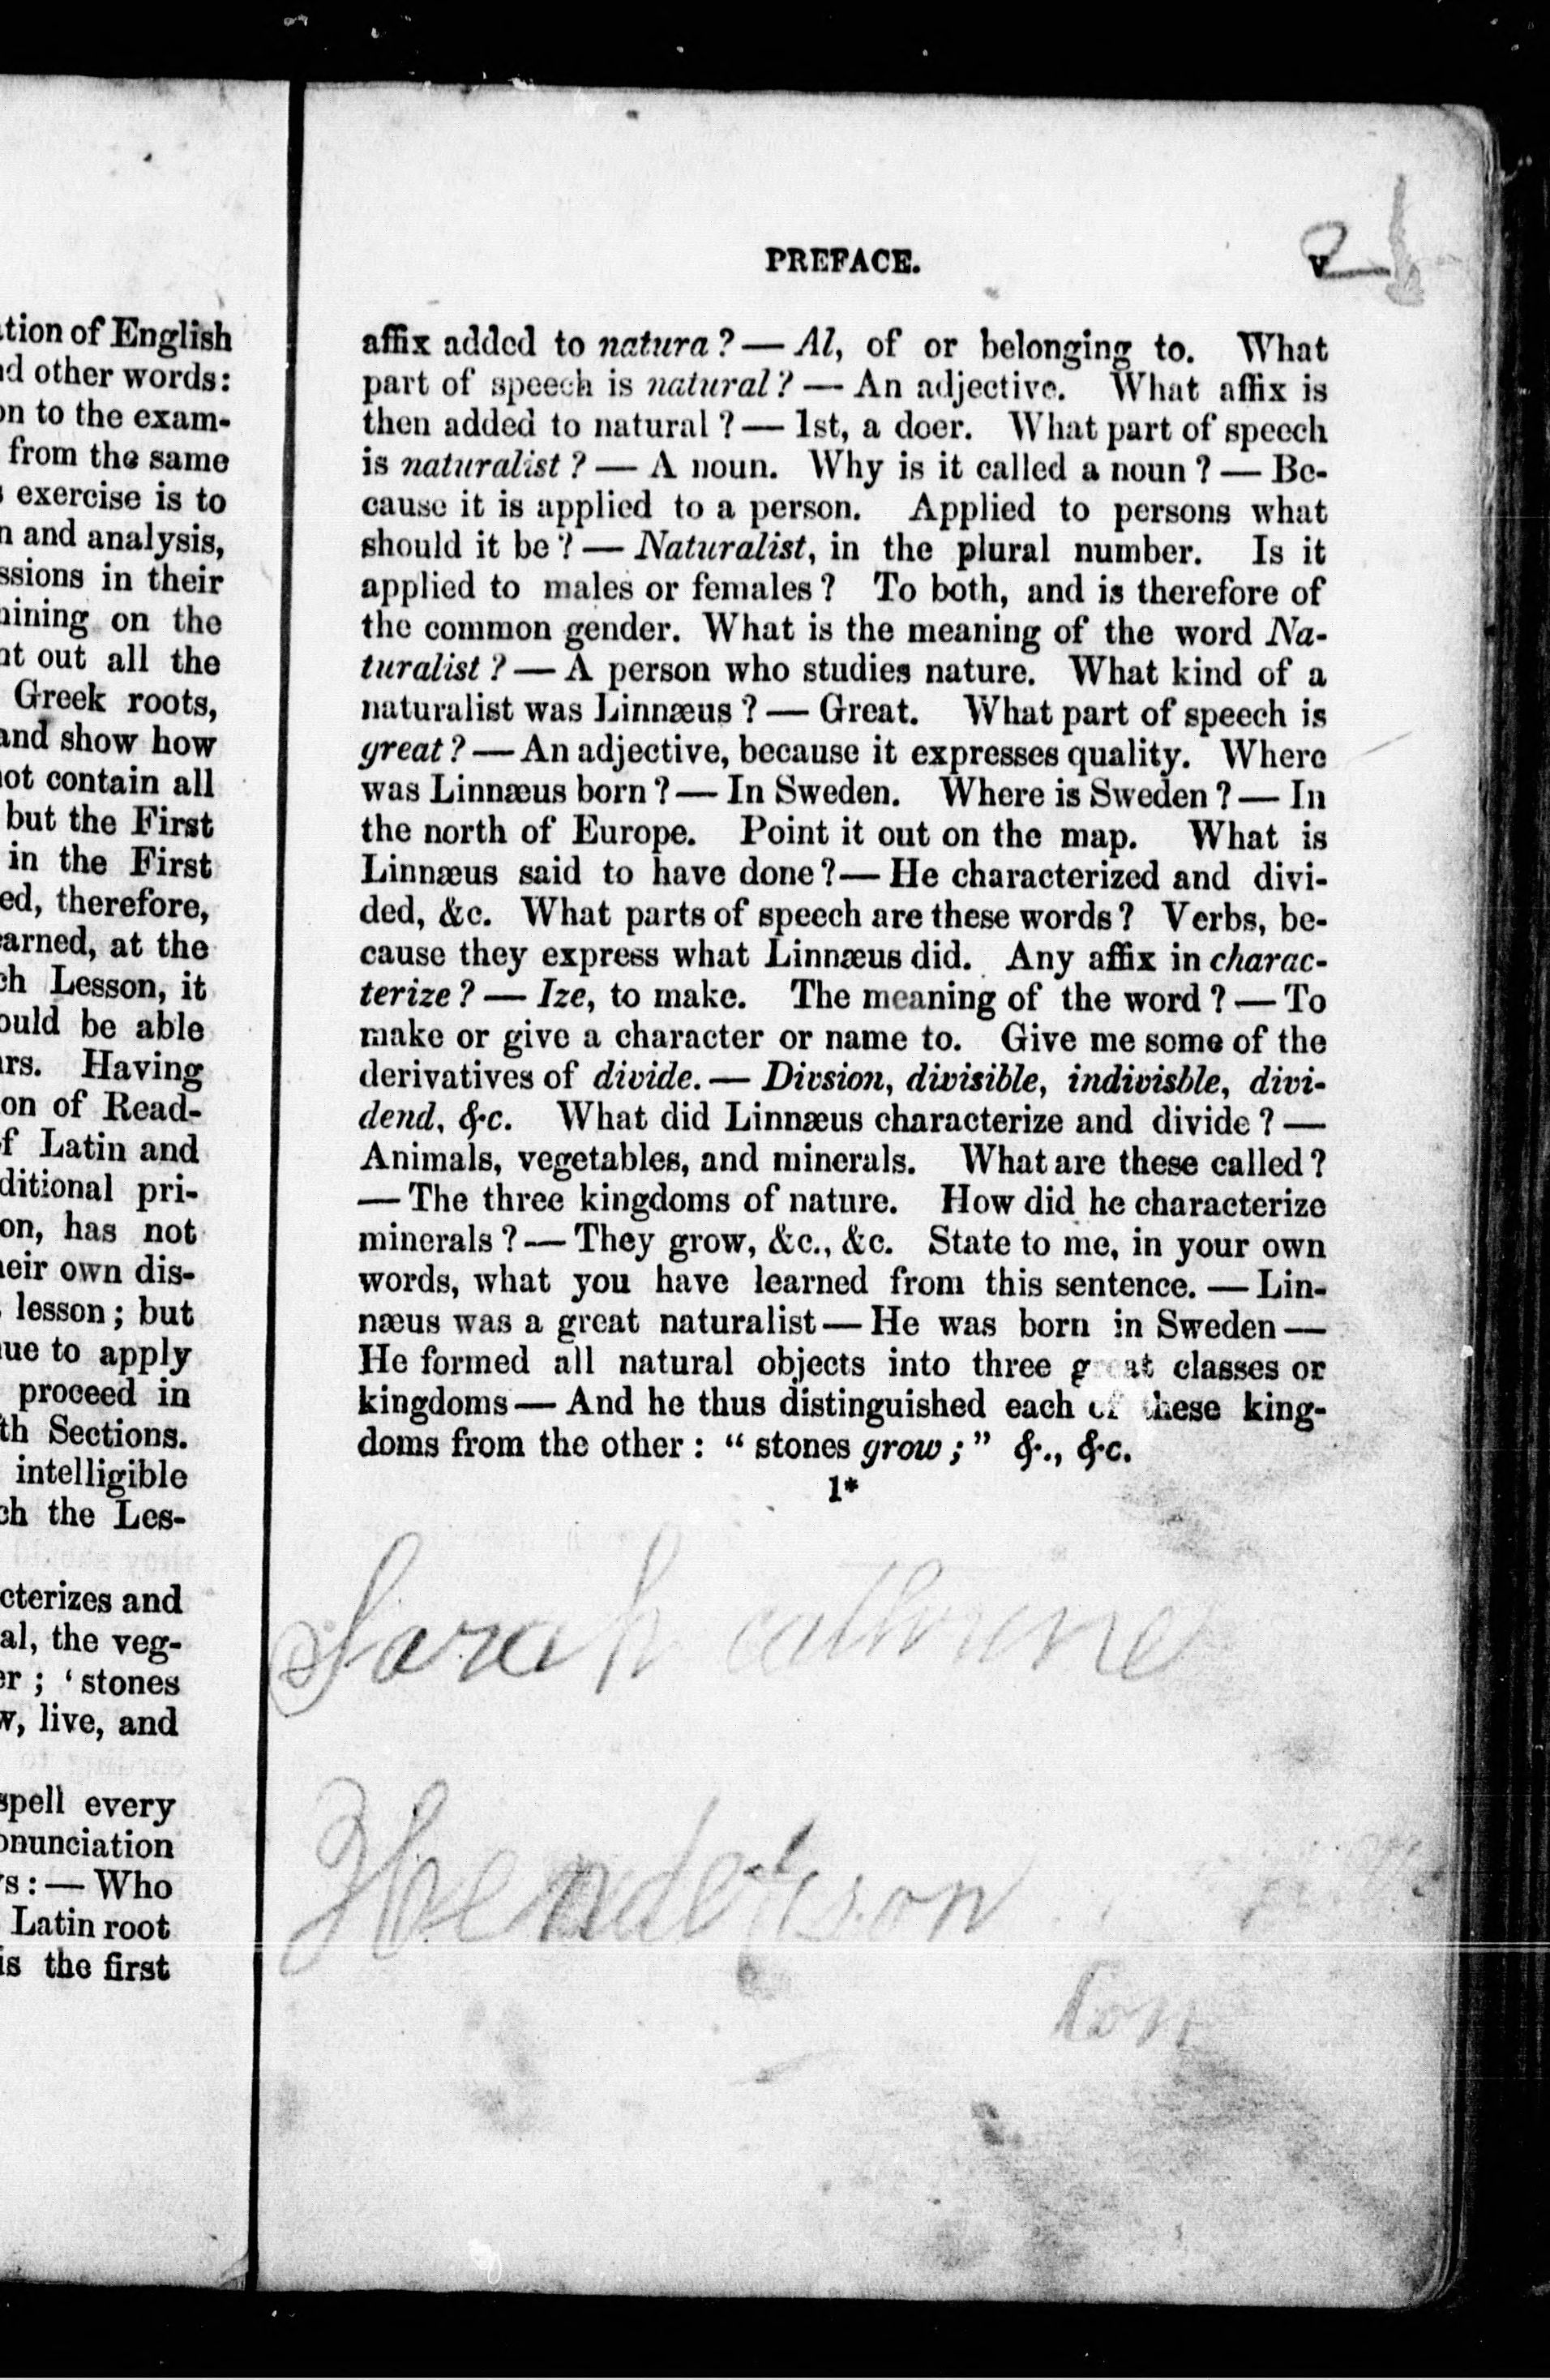 tion of English
d other words:
on to the exam-
from the same
exercise is to
n and analysis,
ssions in their
ining on the
nt out all the
Greek roots,
and show how
not contain all
but the First
in the First
ed, therefore,
earned, at the
ch Lesson, it
ould be able
rs. Having
on of Read-
f Latin and
ditional pri-
on, has not
eir own dis-
lesson; but
ue to apply
proceed in
th Sections.
intelligible
ch the Les-
cterizes and
al, the veg-
er; ‘stones
w, live, and
spell every
onunciation
s:— Who
Latin root
is the first
PREFACE. v
affix added to natura?— Al, of or belonging to. What
part of speech is natural?— An adjective. What affix is
then added to natural?— 1st, a doer. What part of speech
is naturalist?— A noun. Why is it called a noun?— Be-
cause it is applied to a person. Applied to persons what
should it be?— Naturalist, in the plural number. Is it
applied to males or females? To both, and is therefore of
the common gender. What is the meaning of the word Na-
turalist?— A person who studies nature. What kind of a
naturalist was Linnæus?— Great. What part of speech is
great?— An adjective, because it expresses quality. Where
was Linnæus born?— In Sweden. Where is Sweden?— In
the north of Europe. Point it out on the map. What is
Linnæus said to have done?— He characterized and divi-
ded, &c. What parts of speech are these words? Verbs, be-
cause they express what Linnæus did. Any affix in charac-
terize?— Ize, to make. The meaning of the word?— To
make or give a character or name to. Give me some of the
derivatives of divide.— Divsion, divisible, indivisble, divi-
dend, &c. What did Linnæus characterize and divide?—
Animals, vegetables, and minerals. What are these called?
— The three kingdoms of nature. How did he characterize
minerals?— They grow, &c., &c. State to me, in your own
words, what you have learned from this sentence.— Lin-
næus was a great naturalist— He was born in Sweden—
He formed all natural objects into three great classes or
kingdoms— And he thus distinguished each of these king-
doms from the other: “stones grow;” &., &c.
1*
Sarah cathrine
Henderson